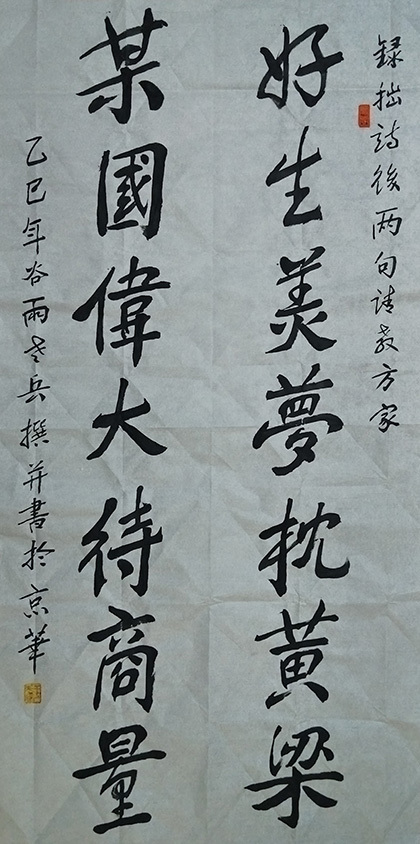 録拙詩後两句请教方家
好生美夢枕黄梁
某國偉大待商量
乙巳年谷雨老兵撰并書於京華